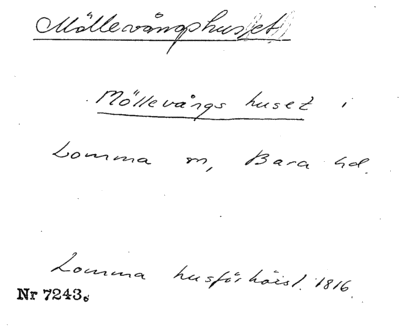 Möllevångshuset
Möllevångs huset i
Lomma sn, Bara hd.
Lomma husförhörsl. 1816.
Nr 7243.